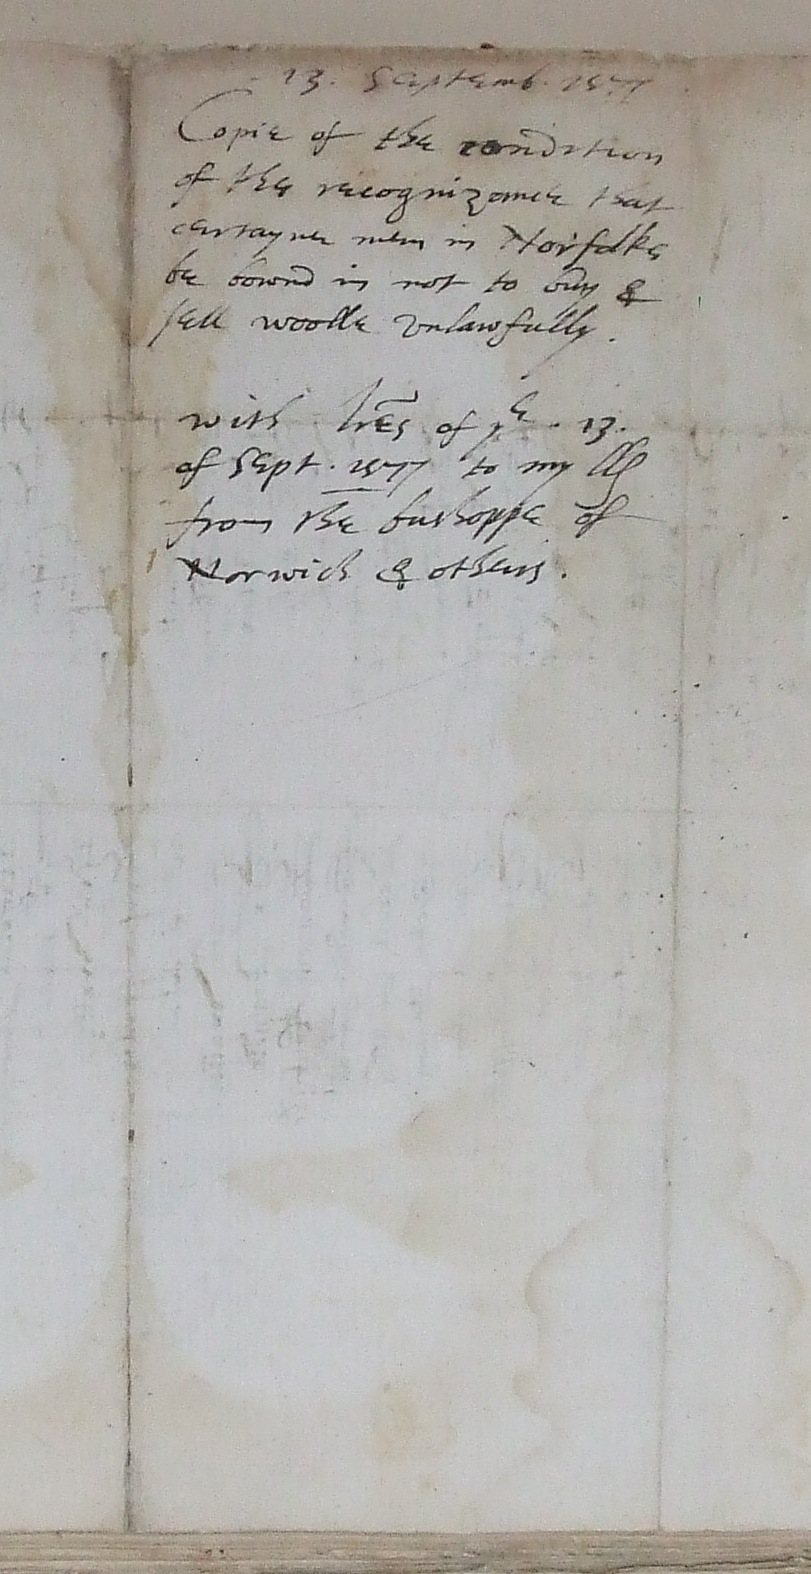 13. Septemb. 1577
Copie of the condition
of the recognizance that
certayne men in Norfolke
be bownd in not to buy &
sell woolle vnlawfully.
with lr̃es of yᵉ. 13.
of Sept. 1577 to my ll
from the busshoppe of
Norwich & others.